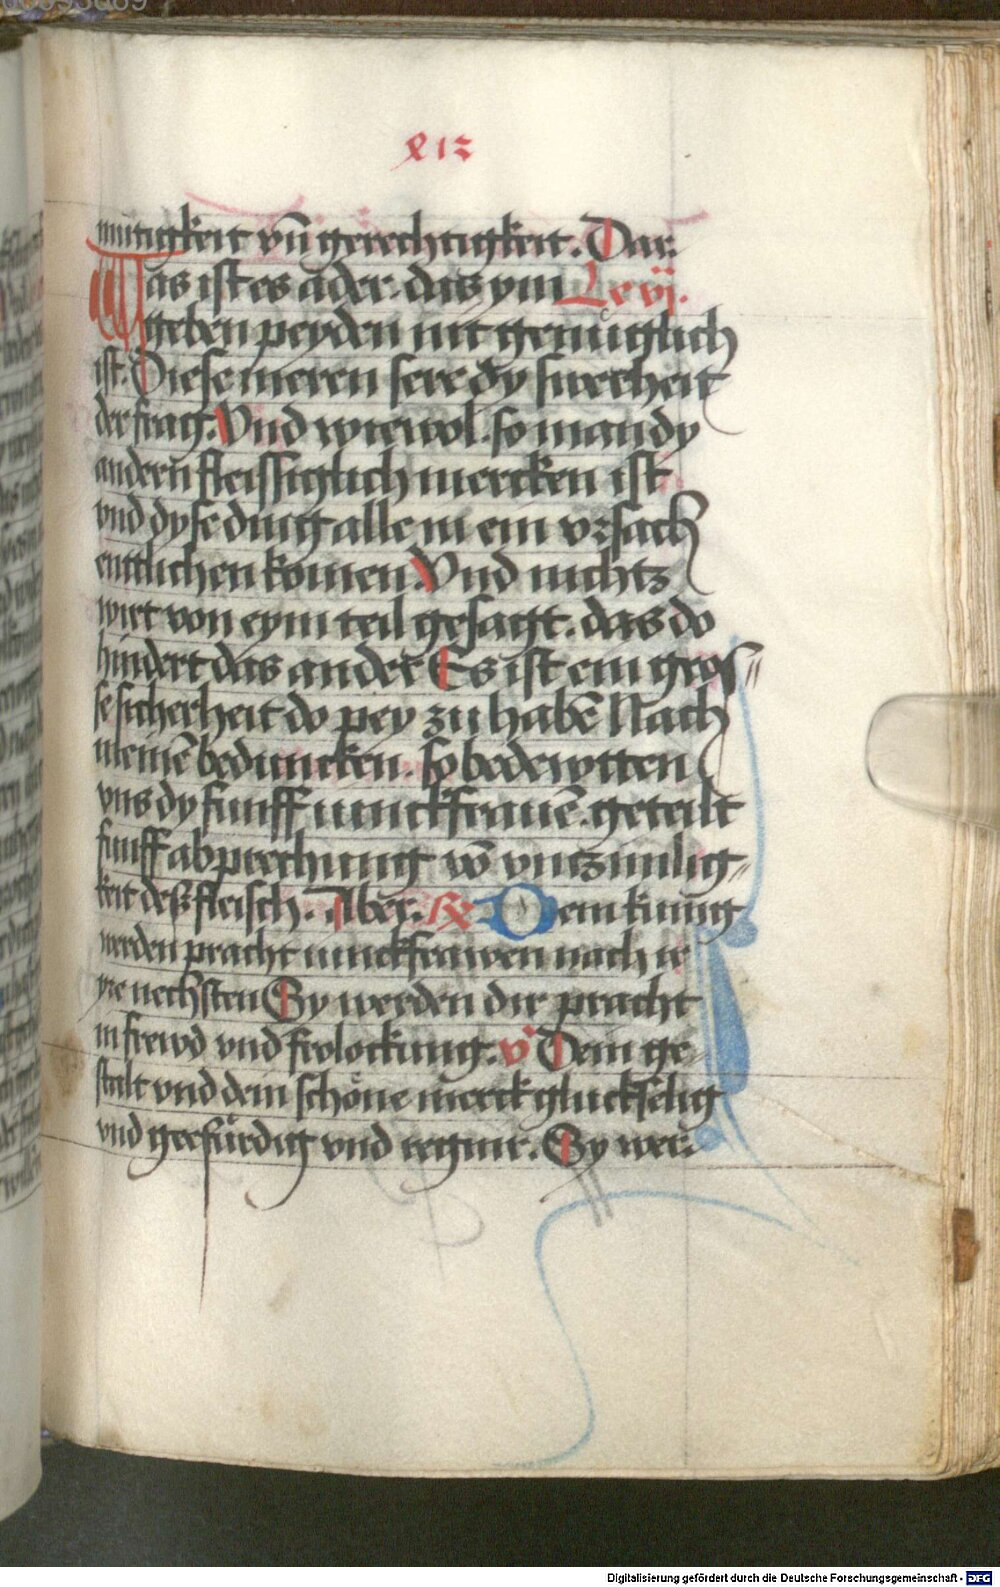 mutigkeit vn̄ gerechtigkeit. Dar.
Was ist es ader. das ym Le vij.
geben peyden nit genüglich
ist. Diese meren sere dy swerheit
der frag. Vnd wiewol. so man dy
andern̄ fleissiglich mercken ist
vnd dyse ding alle in ein vrsach
enttlichen komen. Vnd nichtz
wirt von eym teil gesagt. das do
hindert das ander Es ist ein gros〃
se sicherheit do pey zu habē Nach
meinē beduncken. so bedewtten
vns dy funff iunckfrauē. geteilt
funff abprechung vō vnzimlig〃
keit deß fleisch. Aber. R Dem kunig
werden pracht iunckfrawen nach ir
yre nechsten Sy werden dir pracht
in frewd vnd frolockung. v Dem ge
stalt vnd dein schöne merck gluckselig
vnd geefürdig vnd regnir. Sy wer.
Digitalisierung gefördert durch die Deutsche Forschungsgemeinschaft - DFG